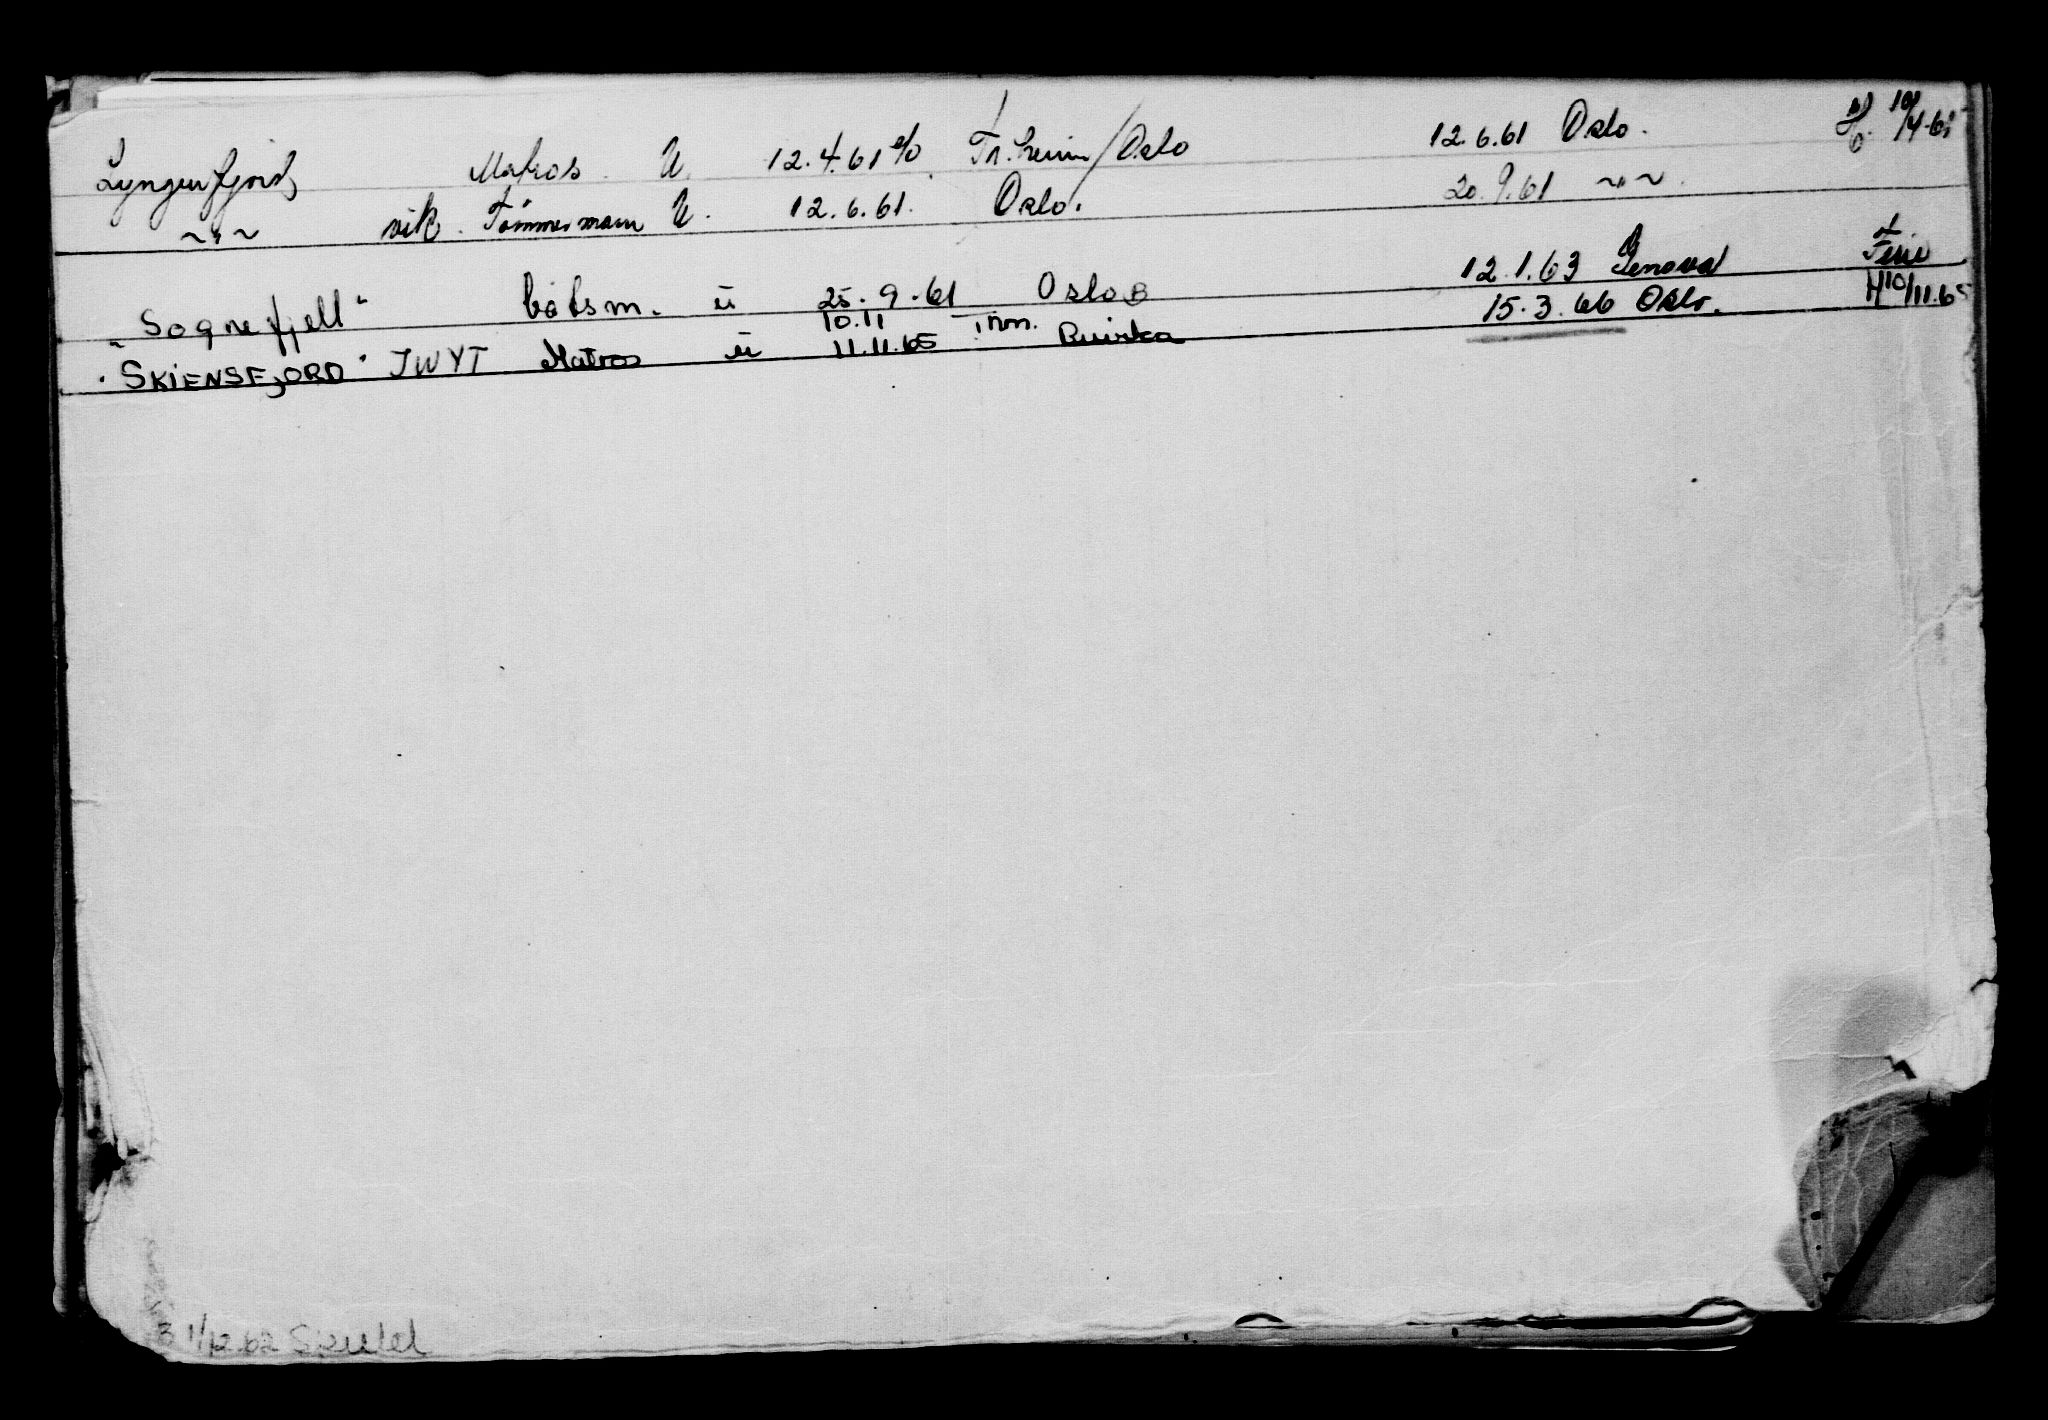 Lyngenfjord Matros U 12.4.61 Tr.heim/Oslo 12.6.61 Oslo. 10/4-61
~"~ vik. Tömmermann U. 12.6.61. Oslo. 20.9.61 ~"~
"Sognefjell" båtsm. ü 25.9.61 Oslo B 12.1.63 Genova Ferie
"SKIENSFJORD" JWYT Matros ü 10.11 11.11.65 Trm. 15.3.66 Oslo. H10/11.65
B 1/12.62